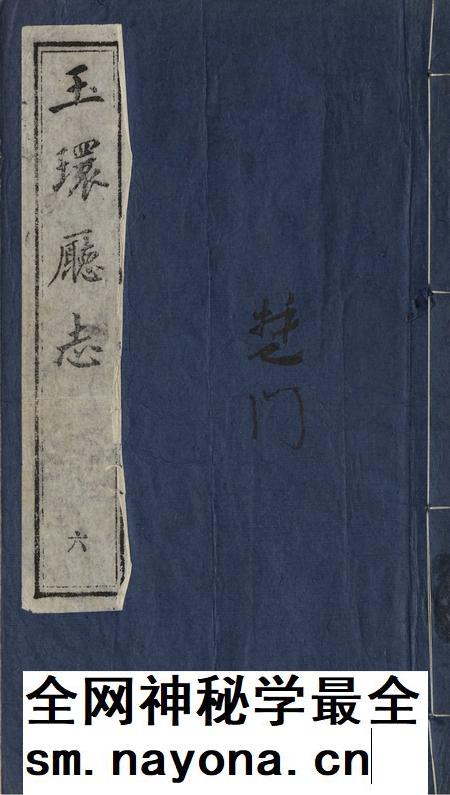 玉環廳志
六
楚门
全网神秘学最全
sm.nayona.cn